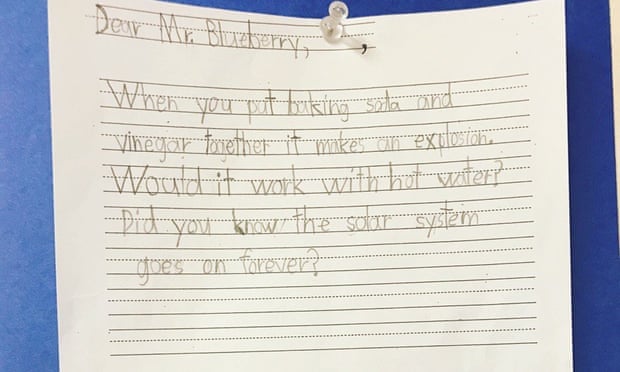 Dear Mr. Blueberry,
,
When you put baking soda and
vinegar together it makes an explosion.
Would it work with hot water?
Did you know the solar system
goes on forever?